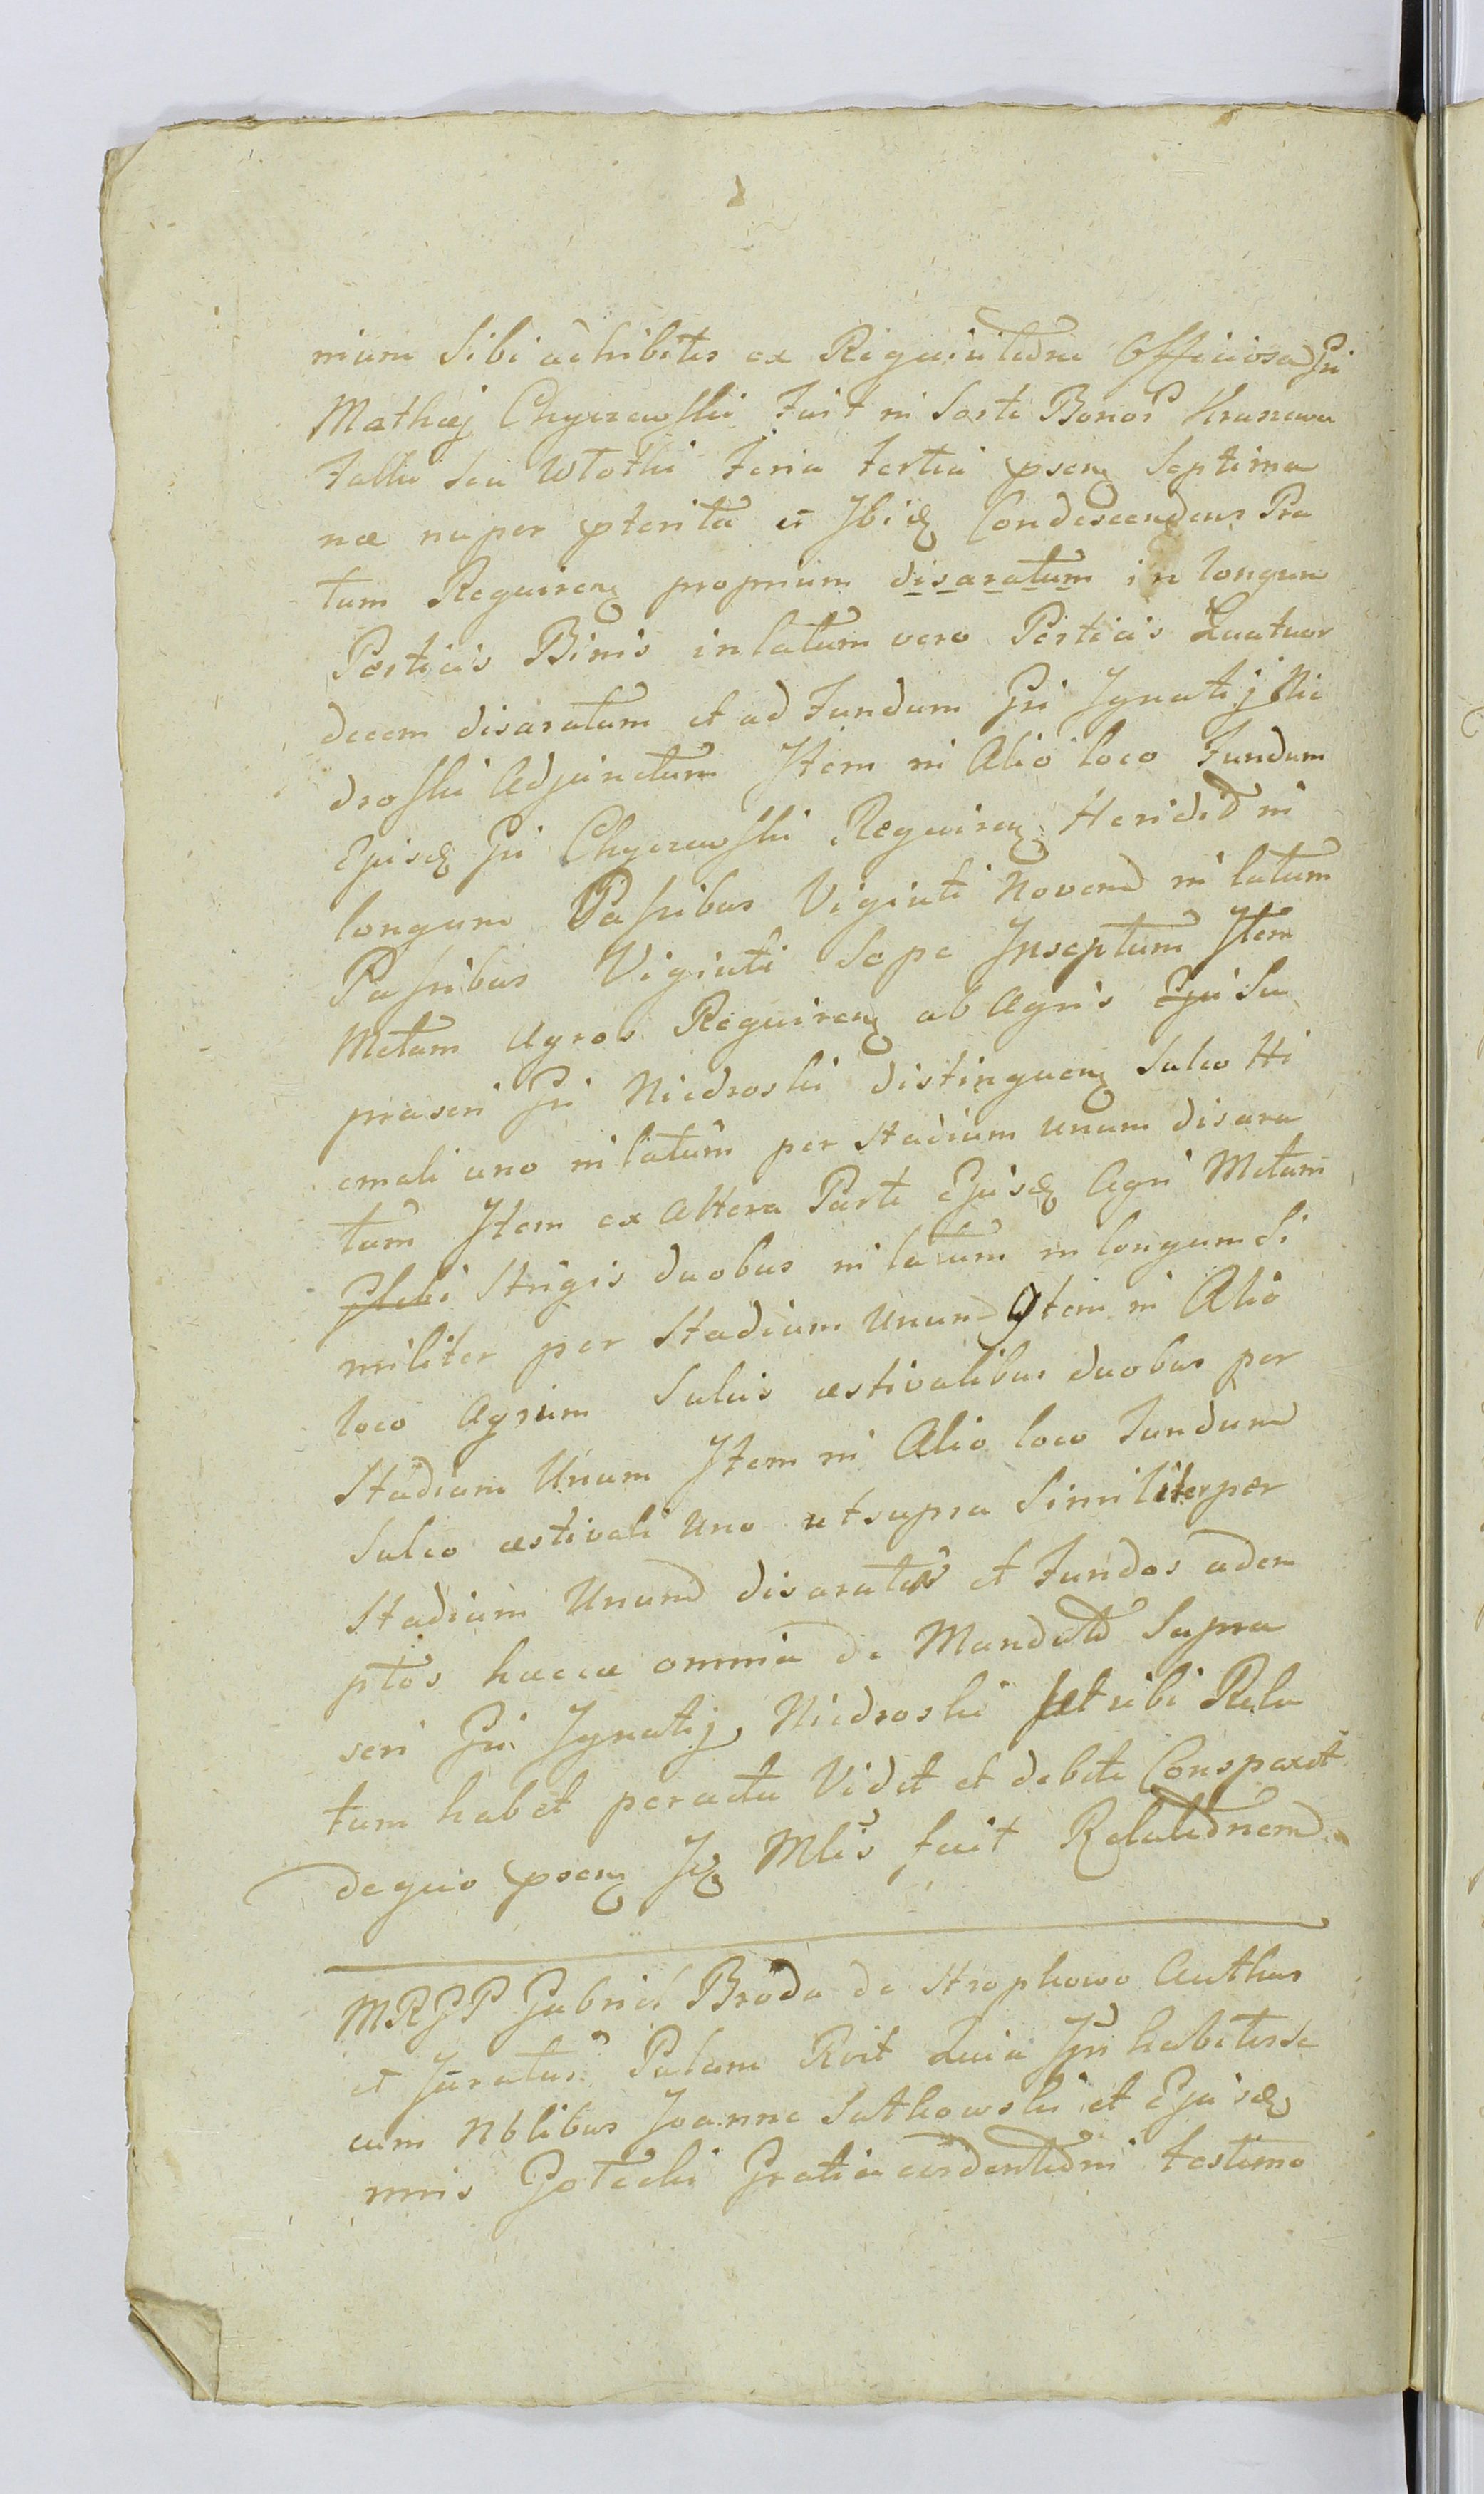 nium Sibi adhibitis ex Requisitedne Officiosa Gri
Mathæj Chyczewski Fuit in Sorte Bonor̃ Kruszewa
Falki Seu Wlotki Feria tertia pseñ Septima
næ nuper pterita et Ibidẽ Condescendens Pra
tum Requireñ proprium disaratum in longum
Perticis Binis in latum vero Perticis Quatuor
decem disaratum et ad Fundum Gri Ignatij Nie
droski Adjunctum Item in Alio loco Fundum
Ejusdẽ Gri Chyczewski Requireñ Heridit in
longum Passibus Viginti Novem in latum
Passibus Viginti Sepe Inseptum Item
Metam Agros Requireñ ab Agris Gri Su
prascri Gri Niedroski distingueñ Sulco Hi
emali uno in latum per Stadium unum disara
tum Item ex Altera Parte Ejusdẽ Agri Metam
Glebi Strigis duobus in latum in longum Si
militer per Stadium Unum Item in Alio
loco Agrum Sulcis æstivalibus duobus per
Stadium Unum Item in Alio loco Fundum
Sulco æstivali Uno ut supra Similiter per
Stadium Unum disaratos et Fundos adem
ptos hæcce omnia de Mandato Supra
scri Gri Ignatij Niedroski sibi Rela
tum habet peracta Vidit et debite Conspexit
de quo pseñ Jẽ Mlis fecit Relatednem

MRGP Gabriel Broda de Strophowo Authus
et Juratus Palam Rvit Quia Ipse habitis se
cum Nblibus Joanne Sutkowski et Ejusdẽ
minis Gotecki Gratia evdentedni testimo